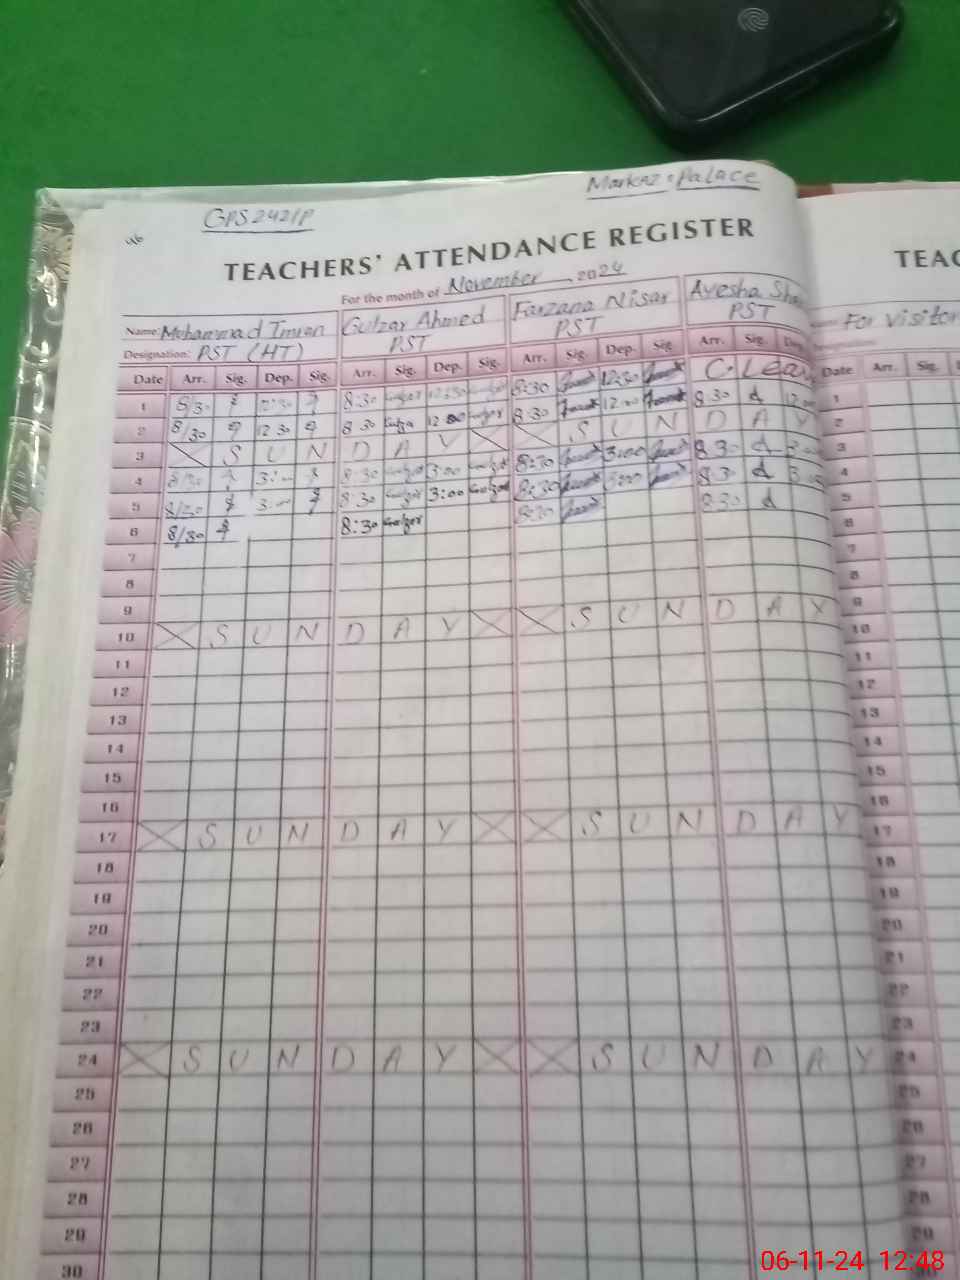 Markaz : Palace
GPS 242/P
TEACHERS' ATTENDANCE REGISTER
For the month of November 2024
Name: Muhammad Imran Gulzar Ahmed Farzana Nisar Ayesha
Designation: PST (HT) PST PST PST
Date Arr. Sig. Dep. Sig. Arr. Sig. Dep. Sig. Arr. Sig. Dep. Sig. Arr. Sig. Dep.
1 8/30 12:30 8:30 Gulzar 12:30 Gulzar 8:30 12:30 C. Leav
2 8/30 12 30 8 30 Gulzar 12 00 Gulzar 8:30 12:00 8 30 12:00
3 S U N D A Y S U N D A Y
4 8/30 3:00 8:30 Gulzar 3:00 Gulzar 8:30 3:00 8 30
5 8/30 3:00 8:30 Gulzar 3:00 Gulzar 8:30 3:00 8 30
6 8/30 8:30 Gulzar 8:30 8:30
7
8
9
10 S U N D A Y S U N D A Y
11
12
13
14
15
16
17 S U N D A Y S U N D A Y
18
19
20
21
22
23
24 S U N D A Y S U N D A Y
25
26
27
28
29
30
TEAC
For Visitor
Date Arr. Sig.
1
2
3
4
5
6
7
8
9
10
11
12
13
14
15
16
17
18
19
20
21
22
23
24
25
26
27
28
29
06-11-24 12:48